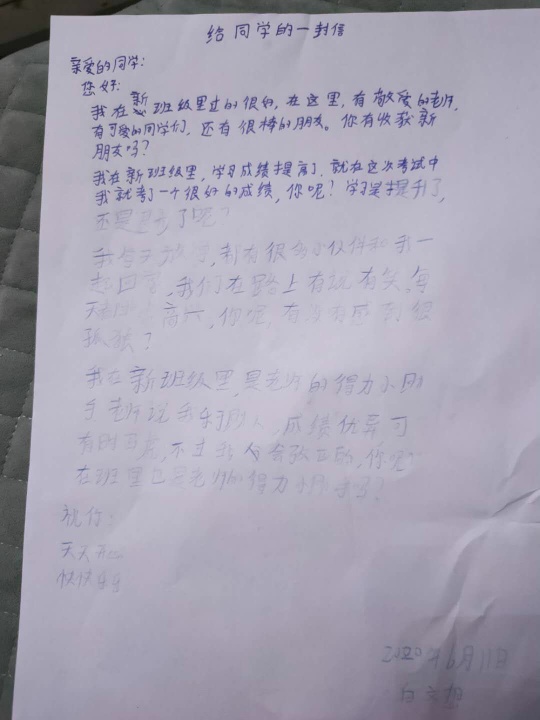 给同学的一封信
亲爱的同学:
您好:
我在新班级里过的很好,在这里,有敬爱的老师,
有可爱的同学们,还有很棒的朋友。你有收获新
朋友吗?
我在新班级里,学习成绩提高了,就在这次考试中
我就考了一个很好的成绩,你呢?学习是提升了,
还是退步了呢?
我每天放学,都有很多小伙伴和我一
起回家,我们在路上有说有笑,每
天高兴,你呢,有没有感到很
孤独?
我在新班级里,是老师的得力小助
手,老师说我乐于助人,成绩优异可
有时马虎,不过我会改正的,你呢
在班里也是老师的得力小助手吗?
祝你:
天天开心
快快乐乐
2020年6月11日